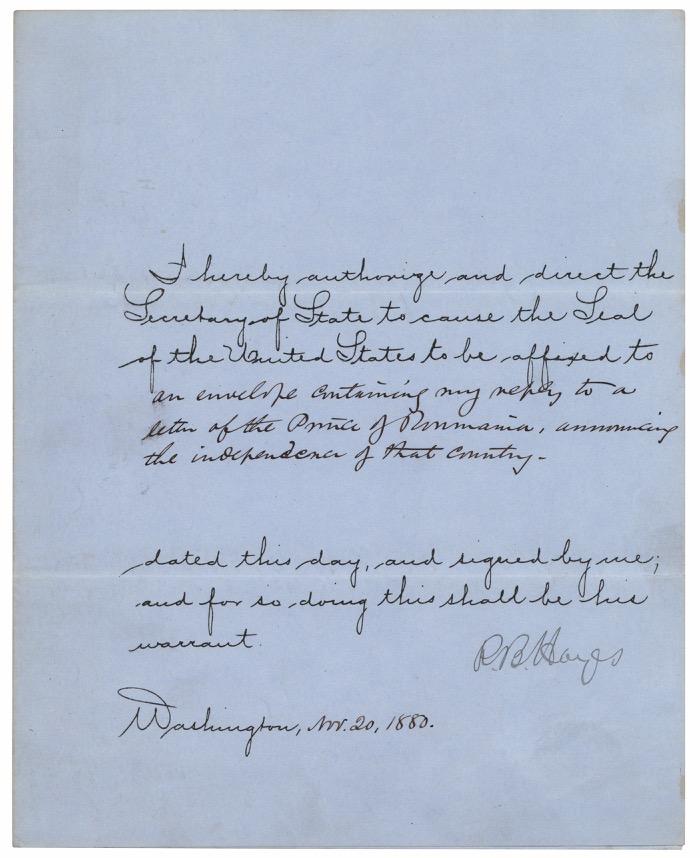 I hereby authorize and direct the
Secretary of State to cause the Seal
of the United States to be affixed to
an envelope containing my reply to a
letter of the Prince of Roumania, announcing
the independence of that country.
dated this day, and signed by me;
and for so doing this shall be his
warrant.
R. B. Hayes
Washington, Nov. 20, 1880.